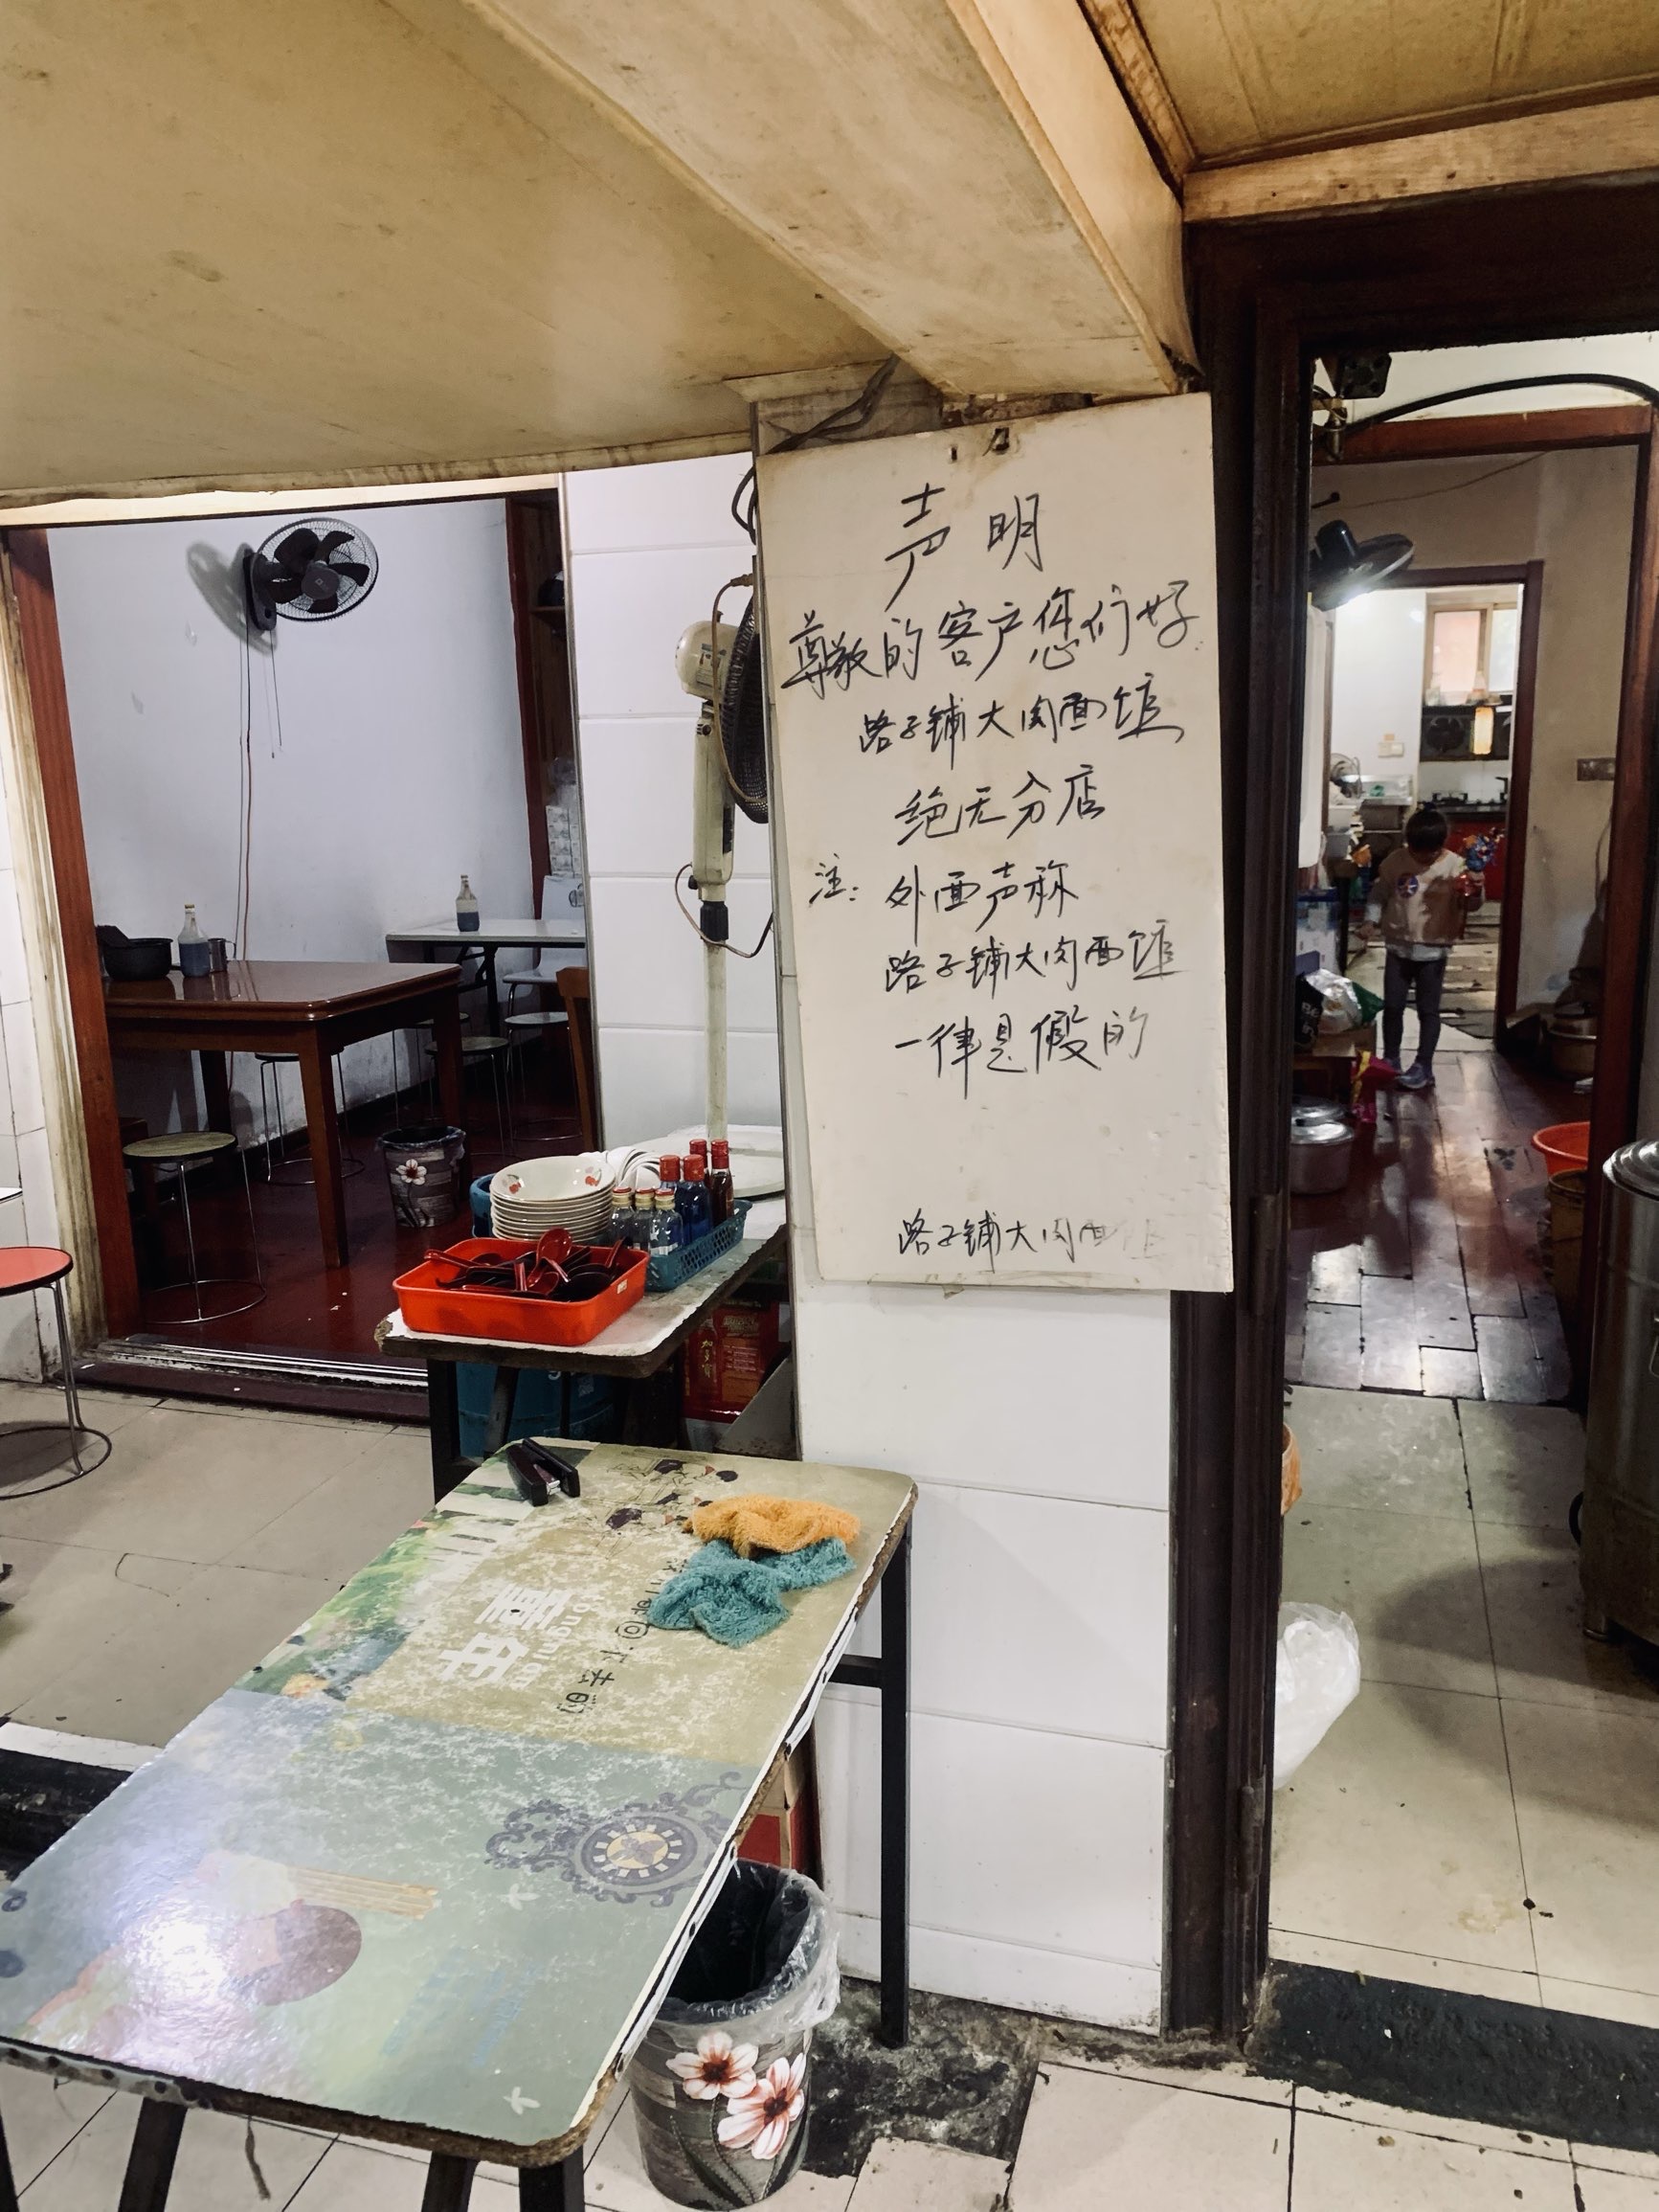 声明
尊敬的客户您们好
路子铺大肉面馆
绝无分店
注：外面声称
路子铺大肉面馆
一律是假的
路子铺大肉面馆
童年
tongnian